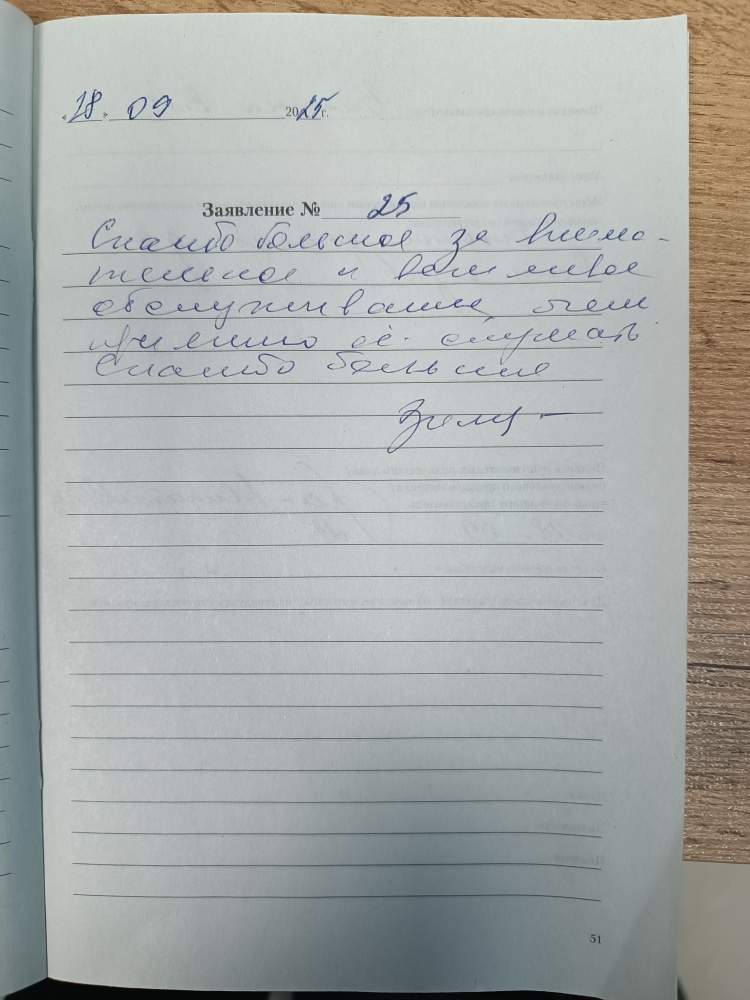 «18» 09 2025 г.
Заявление № 25
Спасибо большое за внима-
тельное и вежливое
обслуживание, очен
приятно её слушать
Спасибо большое
51